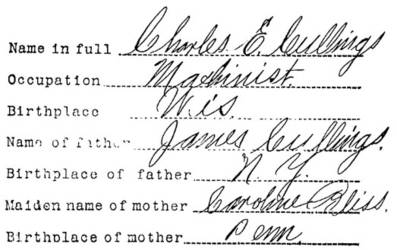 Name in full Charles E. Cullings
Occupation Machinist.
Birthplace Wis.
Name of father James Cullings.
Birthplace of father N. Y.
Maiden name of mother Caroline Bliss.
Birthplace of mother Penn.